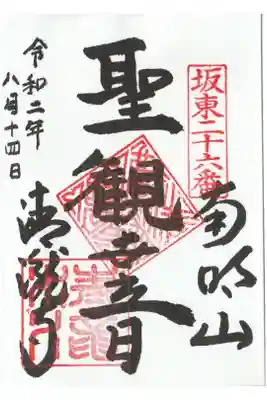 坂東二十六番
南明山
聖觀音
清瀧寺
令和二年
八月十四日